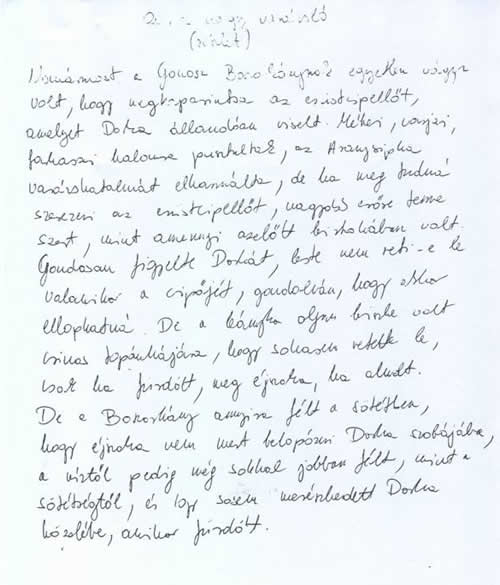 Oz, a nagy varázsló
(részlet)
Namármost a Gonosz Boszorkánynak egyetlen vágya
volt, hogy megkaparintsa az ezüstcipellőt,
amelyet Dorka állandóan viselt. Méhei, varjai,
farkasai halomra pusztultak, az Aranysipka
varázshatalmát elhasználta, de ha meg tudná
szerezni az ezüstcipellőt, nagyobb erőre tenne
szert, mint amennyi azelőtt birtokában volt.
Gondosan figyelte Dorkát, leste nem veti-e le
valamikor a cipőjét, gondolván, hogy akkor
ellophatná. De a lányka olyan büszke volt
csinos topánkájára, hogy sohasem vetette le,
csak ha fürdött, meg éjszaka, ha aludt.
De a Boszorkány annyira félt a sötétben,
hogy éjszaka nem mert belopózni Dorka szobájába,
a víztől pedig még sokkal jobban félt, mint a
sötétségtől, és így sosem merészkedett Dorka
közelébe, amikor fürdött.